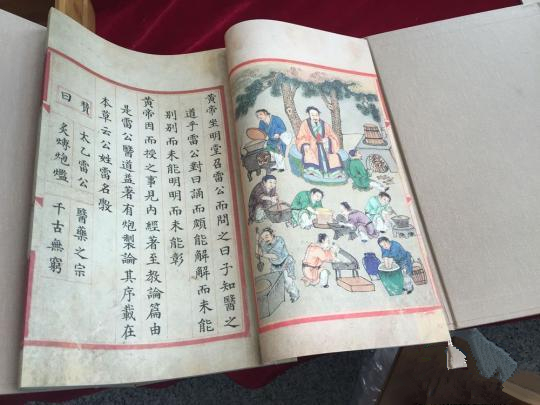 黃帝坐明堂召雷公而問之曰子知醫之
道乎雷公對曰誦而頗能解解而未能
別別而未能明明而未能彰
黃帝因而授之事見內經著至教論篇由
是雷公醫道益著有炮製論其序載在
本草云公姓雷名斅
贊曰
太乙雷公 醫藥之宗
炙煿炮爁 千古無窮